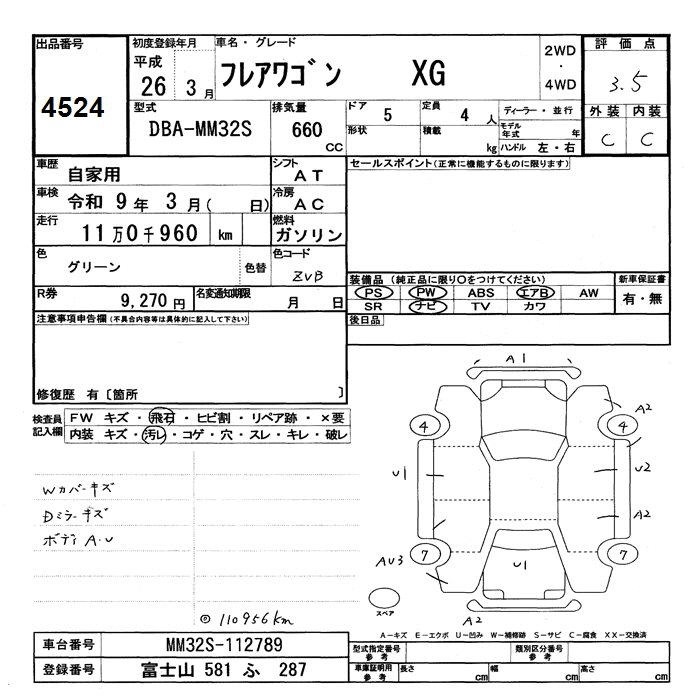 出品番号 4524
初度登録年月 平成 26 3月
車名・グレード フレアワゴン XG
2WD・4WD
評価点 3.5
型式 DBA-MM32S
排気量 660 CC
ドア 5
形状
定員 4 人
積載 kg
ディーラー・並行
モデル年式 年
ハンドル 左・右
外装 C
内装 C
車歴 自家用
シフト AT
セールスポイント(正常に機能するものに限ります)
車検 令和 9年 3月( 日)
冷房 AC
走行 11万0千960 km
燃料 ガソリン
色 グリーン
色替
色コード ZVB
装備品 (純正品に限り○をつけてください)
新車保証書
PS PW ABS エアB AW
SR ナビ TV カワ
有・無
R券 9,270円
名変通知期限 月 日
後日品
注意事項申告欄(不具合内容等は具体的に記入して下さい)
修復歴 有〔箇所 〕
検査員記入欄
FW キズ・飛石・ヒビ割・リペア跡・×要
内装 キズ・汚レ・コゲ・穴・スレ・キレ・破レ
Wカバーキズ
Dミラーキズ
ボディ A・U
◎110956km
A1
A2
4
4
U1
U2
A2
AU3
7
7
U1
スペア
A2
A-キズ E-エクボ U-凹み W-補修跡 S-サビ C-腐食 XX-交換済
車台番号 MM32S-112789
型式指定番号 参考
類別区分番号 参考
登録番号 富士山 581 ふ 287
車庫証明用 参考
長さ cm
幅 cm
高さ cm